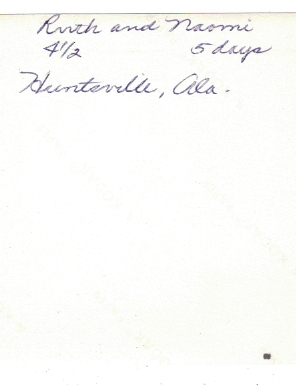 Ruth and Naomi
4 1/2 5 days
Huntsville, Ala.